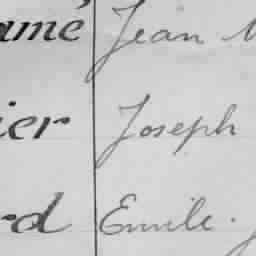 amé Jean
ier Joseph
rd Emile.